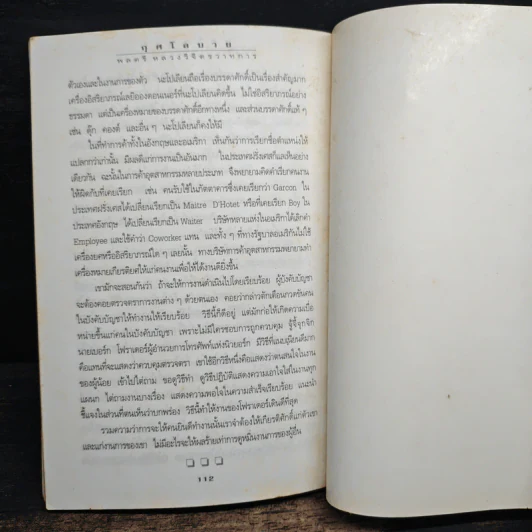 กุศโลบาย
พลตรี หลวงวิจิตรวาทการ
ตัวเองและในงานการของตัว นะโปเลียนถือเรื่องบรรดาศักดิ์เป็นเรื่องสำคัญมาก
เครื่องอิสริยาภรณ์เลยิอองดอนเนอร์ที่นะโปเลียนคิดขึ้น ไม่ใช่อิสริยาภรณ์อย่าง
ธรรมดา แต่เป็นเครื่องหมายของบรรดาศักดิ์อีกทางหนึ่ง และส่วนบรรดาศักดิ์แท้ ๆ
เช่น ดุ๊ก คองต์ และอื่น ๆ นะโปเลียนก็คงให้มี
ในที่ทำการค้าทั้งในอังกฤษและอเมริกา เห็นกันว่าการเรียกชื่อตำแหน่งให้
แปลกกว่าเก่านั้น มีผลดีแก่การงานเป็นอันมาก ในประเทศฝรั่งเศสก็แลเห็นอย่าง
เดียวกัน ฉะนั้นในการค้าอุตสาหกรรมหลายประเภท จึงพยายามคิดคำเรียกคนงาน
ให้ผิดกับที่เคยเรียก เช่น คนรับใช้ในภัตตาคารซึ่งเคยเรียกว่า Garcon ใน
ประเทศฝรั่งเศสได้เปลี่ยนเรียกเป็น Maitre D'Hotel หรือที่เคยเรียก Boy ใน
ประเทศอังกฤษ ได้เปลี่ยนเรียกเป็น Waiter บริษัทหลายแห่งในอเมริกาได้เลิกคำ
Employee และใช้คำว่า Coworker แทน และทั้ง ๆ ที่ทางรัฐบาลอเมริกันไม่ใช้
เครื่องยศหรืออิสริยาภรณ์ใด ๆ เลยนั้น ทางบริษัทการค้าอุตสาหกรรมพยายามทำ
เครื่องหมายเกียรติยศให้แก่คนงานเพื่อให้ได้งานดียิ่งขึ้น
เรามักจะสอนกันว่า ถ้าจะให้การงานดำเนินไปโดยเรียบร้อย ผู้บังคับบัญชา
จะต้องคอยตรวจตราการงานต่าง ๆ ด้วยตนเอง คอยว่ากล่าวตักเตือนกวดขันคน
ในบังคับบัญชาให้ทำงานให้เรียบร้อย วิธีนี้ก็ดีอยู่ แต่มักก่อให้เกิดความเบื่อ
หน่ายขึ้นแก่คนในบังคับบัญชา เพราะไม่มีใครชอบการถูกควบคุม จู้จี้จุกจิก
นายเบอร์ก โฟราเตอร์ผู้อำนวยการโทรศัพท์แห่งนิวยอร์ก มีวิธีที่แนบเนียนดีมาก
คือแทนที่จะแสดงว่าควบคุมตรวจตรา เขาใช้อีกวิธีหนึ่งคือแสดงว่าตนสนใจในงาน
ของผู้น้อย เข้าไปไต่ถาม ขอดูวิธีทำ ดูวิธีปฏิบัติแสดงความเอาใจใส่ในงานทุก
แผนก ไต่ถามงานบางเรื่อง แสดงความพอใจในความสำเร็จเรียบร้อย แนะนำ
ชี้แจงในส่วนที่ตนเห็นว่าบกพร่อง วิธีนี้ทำให้งานของโฟราเตอร์เดินดีที่สุด
รวมความว่าการจะให้คนยินดีทำงานนั้นเราจำต้องให้เกียรติศักดิ์แก่ตัวเขา
และแก่งานการของเขา ไม่มีอะไรจะให้ผลร้ายเท่าการดูหมิ่นงานการของผู้อื่น
112